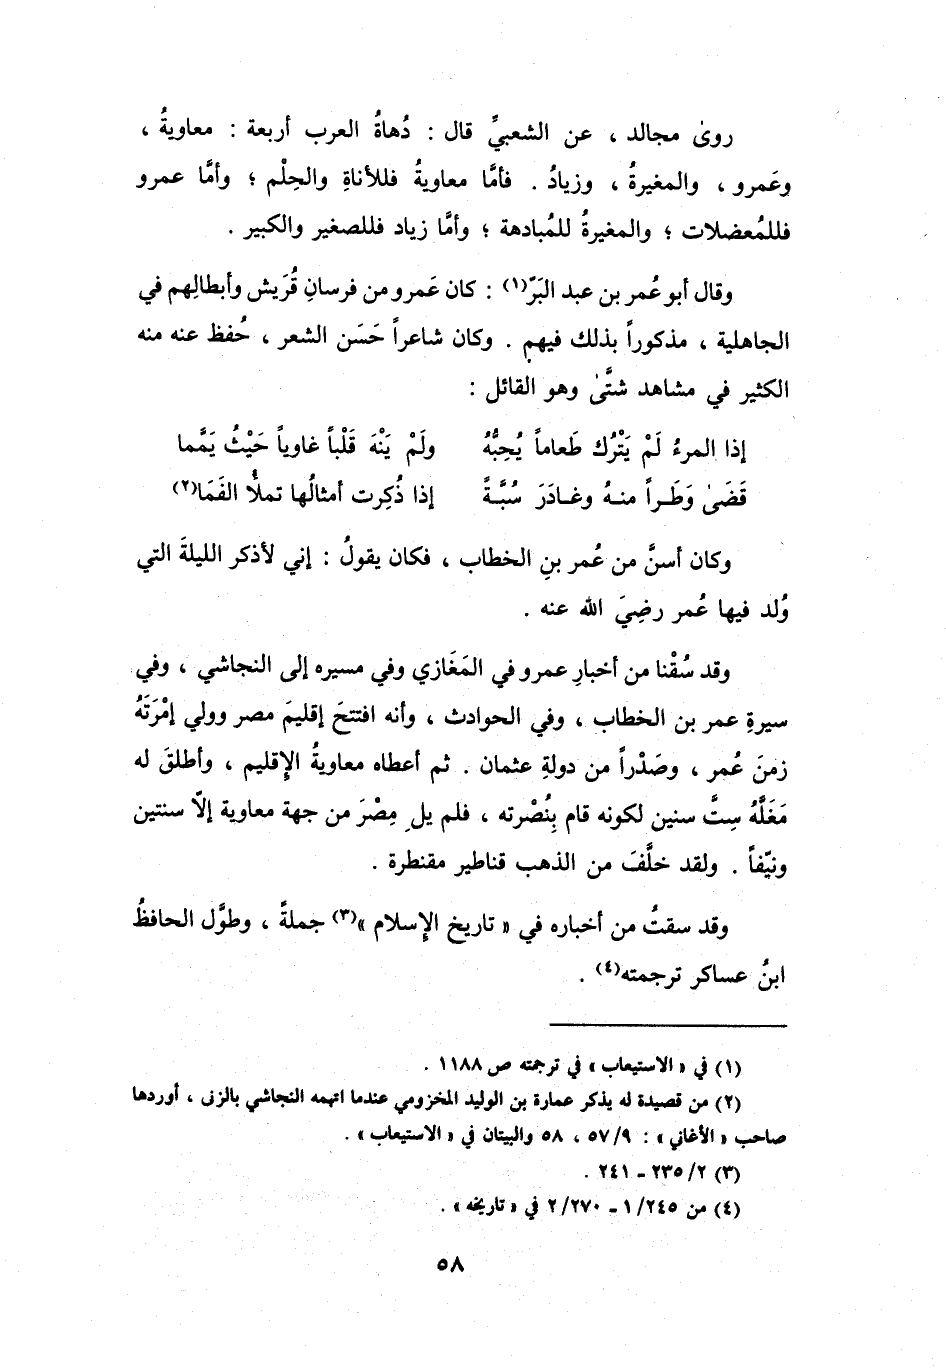 روىٰ مجالد ، عن الشعبيِّ قال : دُهاةُ العرب أربعة : معاويةُ ،
وعَمرو ، والمغيرةُ ، وزيادُ . فأمَّا معاويةُ فللأناةِ والحِلْم ؛ وأمَّا عمرو
فللمُعضلات ؛ والمغيرةُ للمُبادهة ؛ وأمَّا زياد فللصغير والكبير .
وقال أبو عُمر بن عبد البَرّ(١) : كان عَمرو من فرسانِ قُرَيش وأبطالِهم في
الجاهلية ، مذكوراً بذلك فيهم . وكان شاعراً حَسَن الشعر ، حُفظ عنه منه
الكثير في مشاهد شتَّىٰ وهو القائل :
إذا المرءُ لَمْ يَتْرُك طَعاماً يُحِبُّهُ ولَمْ يَنْهَ قَلْباً غاوياً حَيْثُ يَمَّما
قَضَىٰ وَطَراً منهُ وغادَرَ سُبَّةً إذا ذُكِرت أمثالُها تملأُ الفَمَا(٢)
وكان أسنَّ من عُمر بنِ الخطاب ، فكان يقولُ : إني لأذكر الليلةَ التي
وُلد فيها عُمر رضِيَ الله عنه .
وقد سُقْنا من أخبارِ عمرو في المَغَازي وفي مسيره إلى النجاشي ، وفي
سيرةِ عمر بن الخطاب ، وفي الحوادث ، وأنه افتتحَ إقليمَ مصر وولي إمْرَتَهُ
زمنَ عُمر ، وصَدْراً من دولةِ عثمان . ثم أعطاه معاويةُ الإقليم ، وأطلقَ له
مَغَلَّهُ سِتَّ سنين لكونه قام بِنُصْرته ، فلم يلِ مِصْرَ من جهة معاوية إلاّ سنتين
ونيّفاً . ولقد خلَّفَ من الذهب قناطير مقنطرة .
وقد سقتُ من أخباره في « تاريخ الإسلام »(٣) جملةً ، وطوَّل الحافظُ
ابنُ عساكر ترجمته(٤) .
(١) في « الاستيعاب » في ترجمته ص ١١٨٨ .
(٢) من قصيدة له يذكر عمارة بن الوليد المخزومي عندما اتهمه النجاشي بالزنى ، أوردها
صاحب « الأغاني » : ٥٧/٩ ، ٥٨ والبيتان في « الاستيعاب » .
(٣) ٢٣٥/٢ - ٢٤١ .
(٤) من ١/٢٤٥ - ٢/٢٧٠ في « تاريخه » .
٥٨